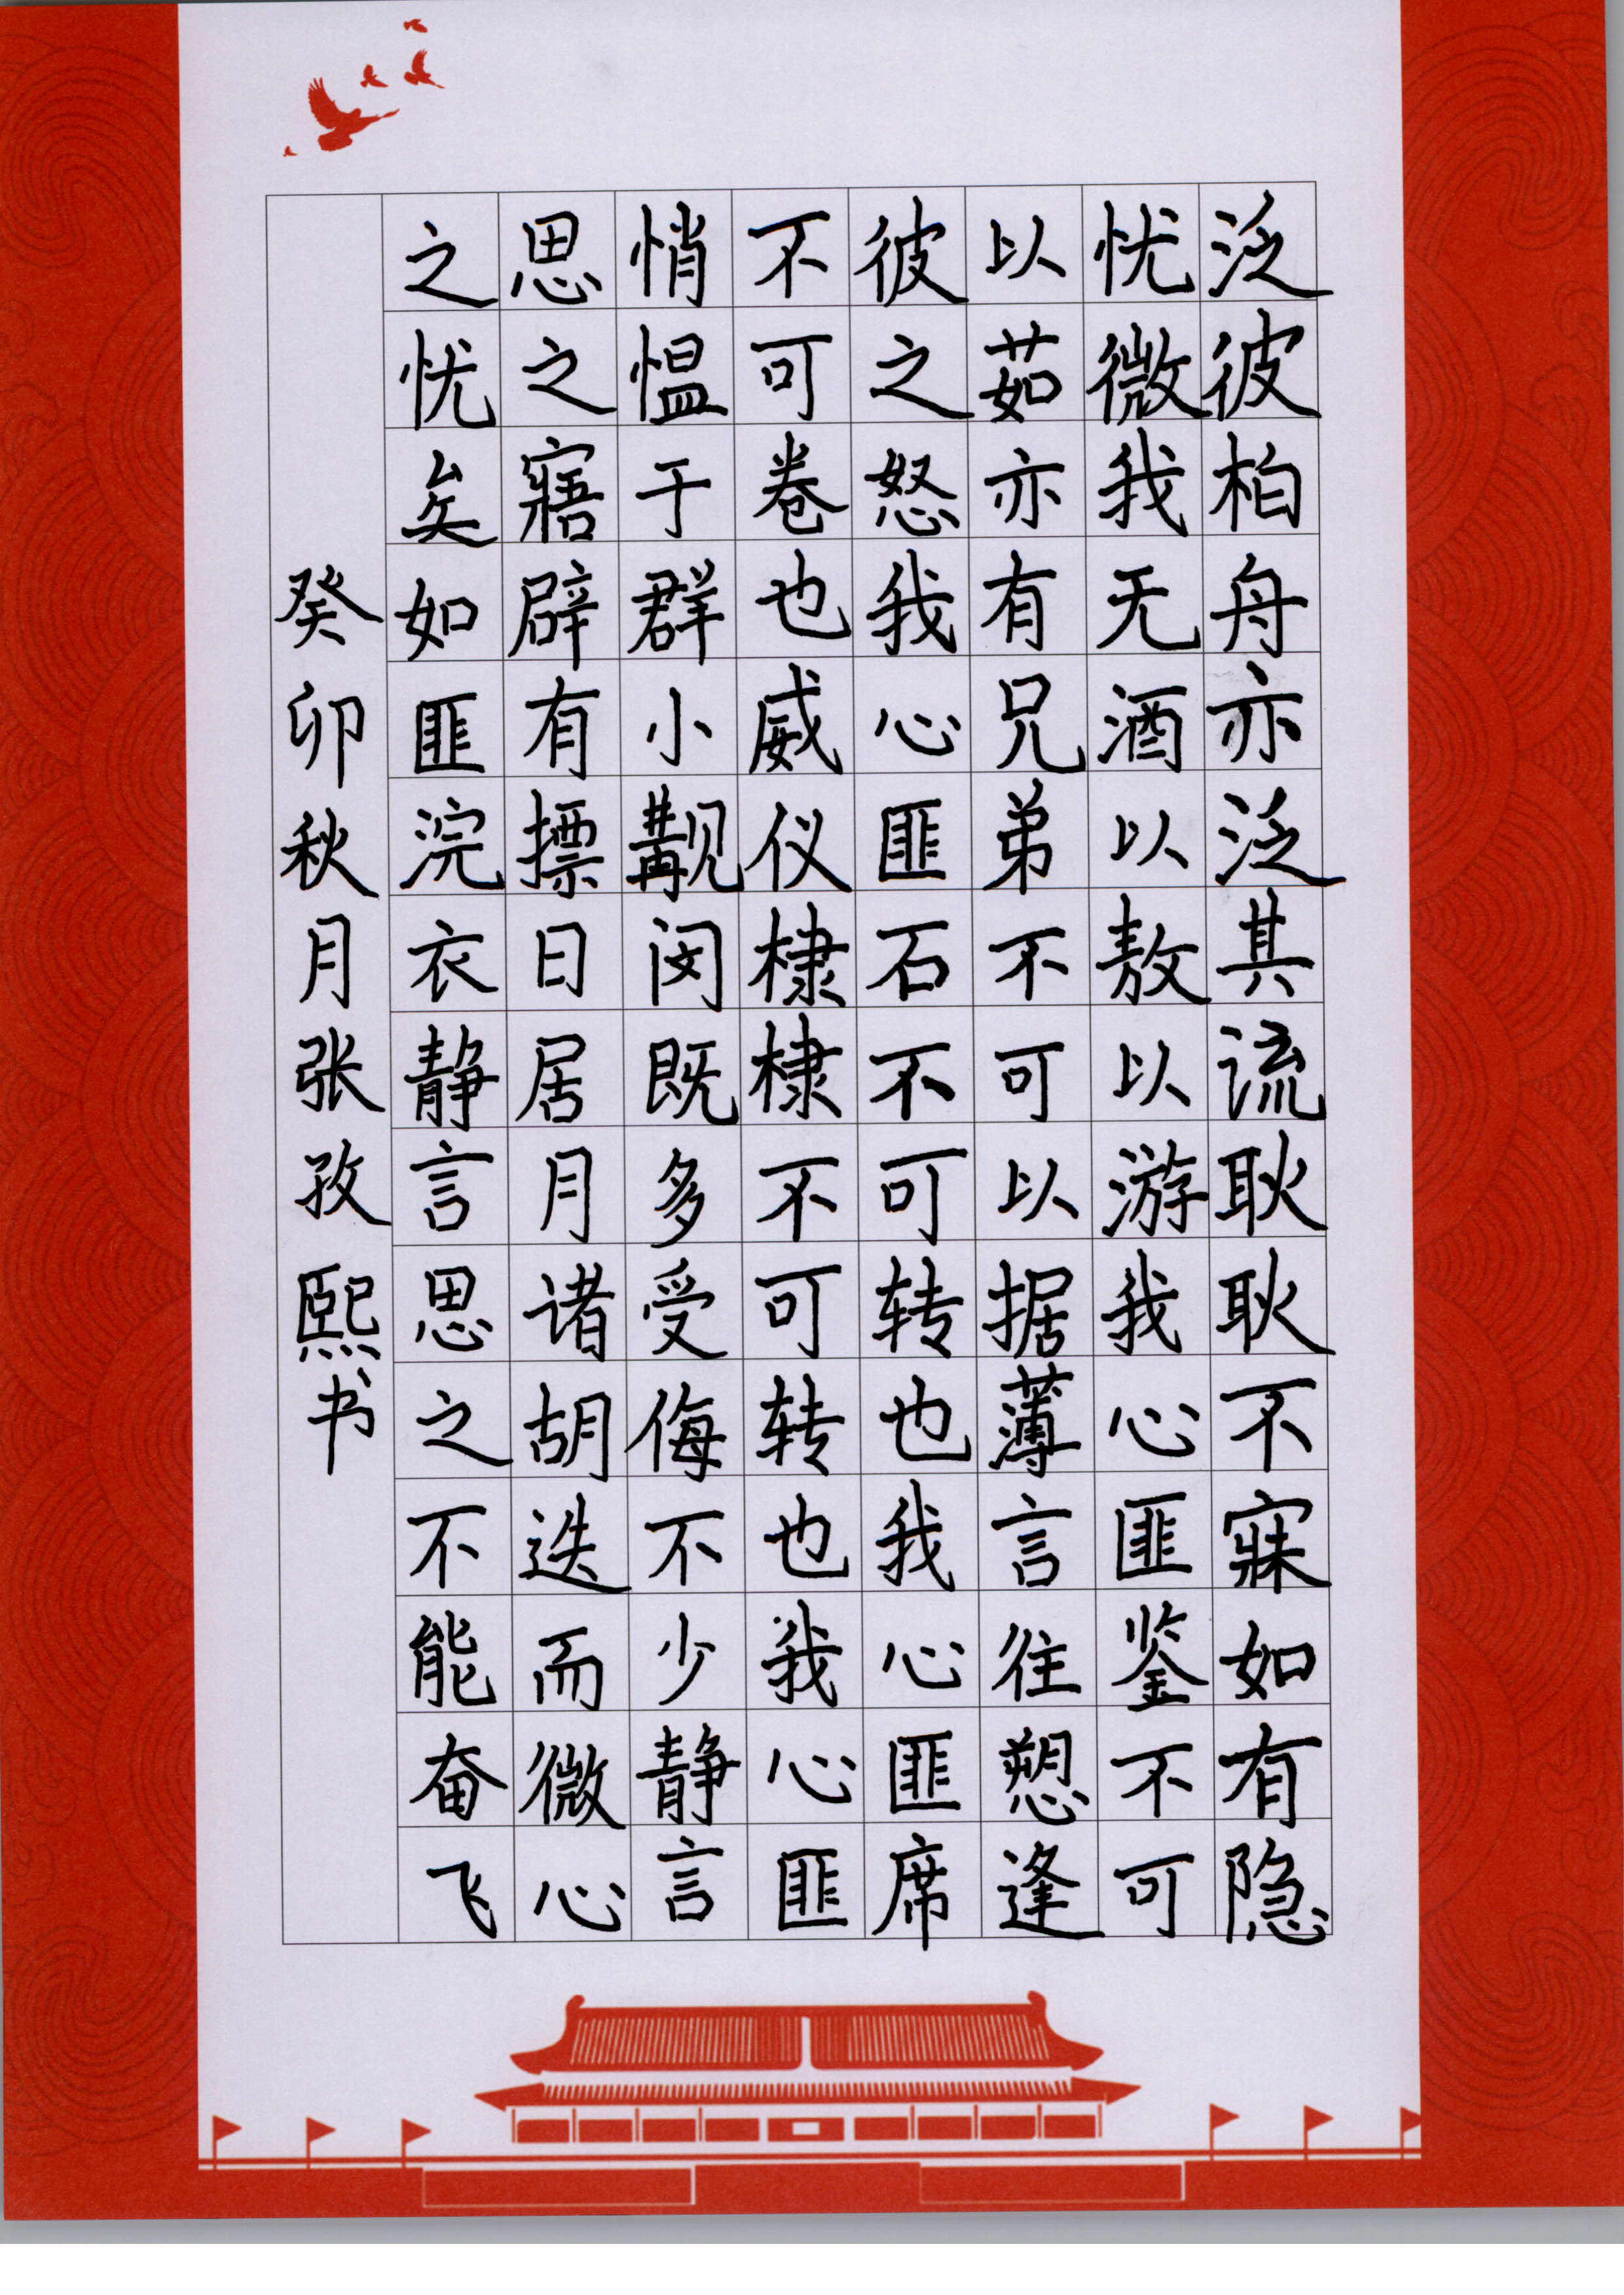 泛彼柏舟亦泛其流耿耿不寐如有隐
忧微我无酒以敖以游我心匪鉴不可
以茹亦有兄弟不可以据薄言往愬逢
彼之怒我心匪石不可转也我心匪席
不可卷也威仪棣棣不可转也我心匪
悄愠于群小觏闵既多受侮不少静言
思之寤辟有摽日居月诸胡迭而微心
之忧矣如匪浣衣静言思之不能奋飞
癸卯秋月张孜熙书